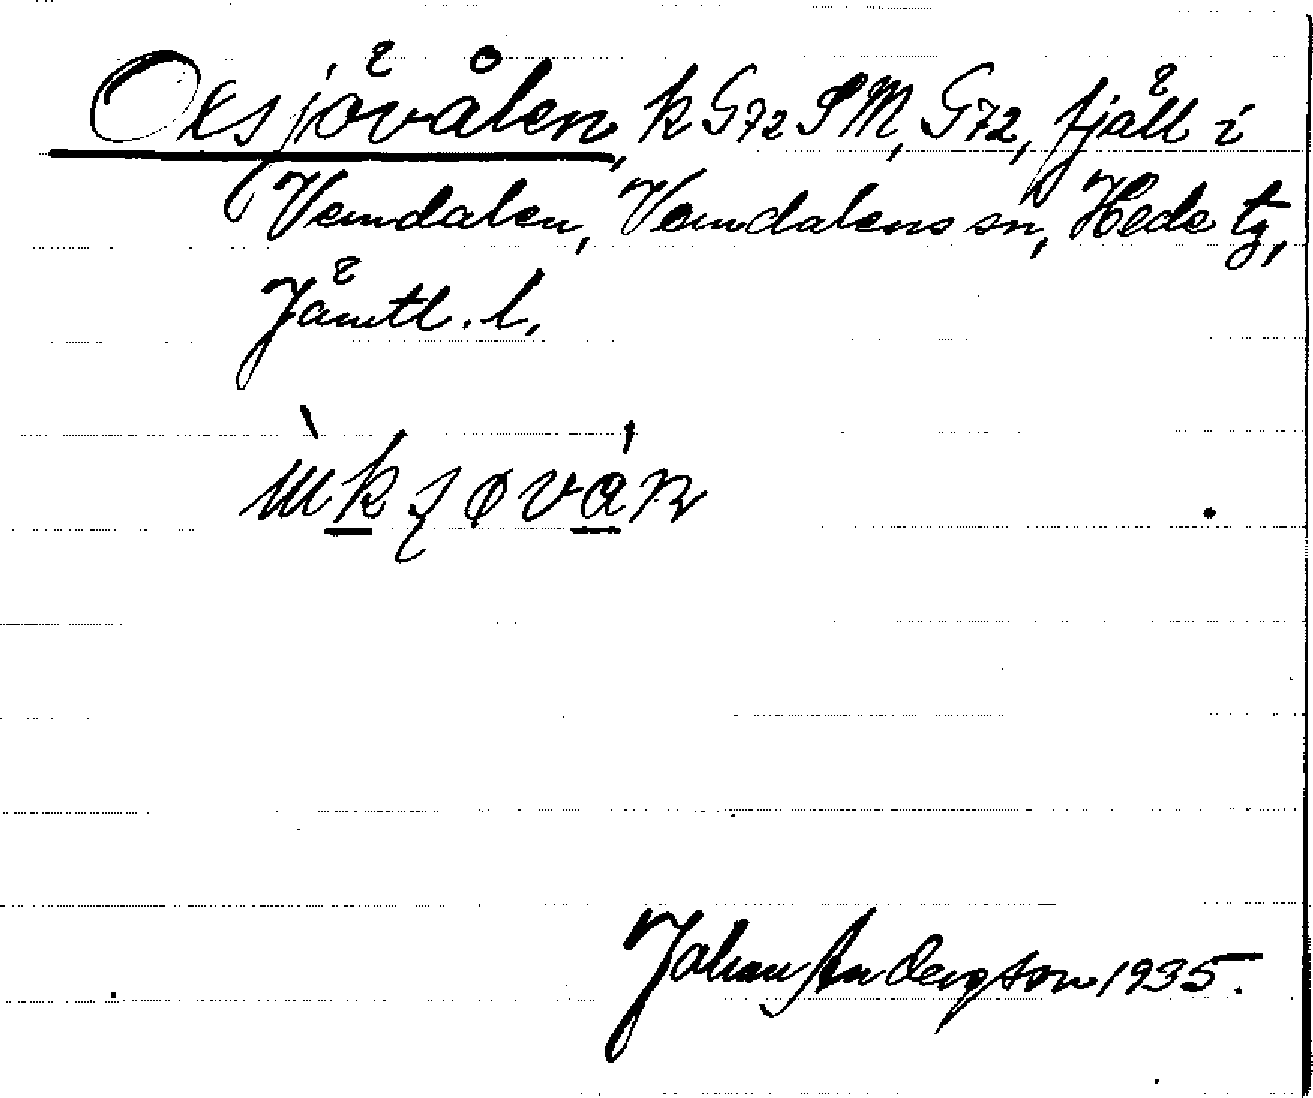 Oxsjövålen, k G72 SM, G72, fjäll i
Vemdalen, Vemdalens sn, Hede tg,
Jämtl. l.
Johan Andersson 1935.